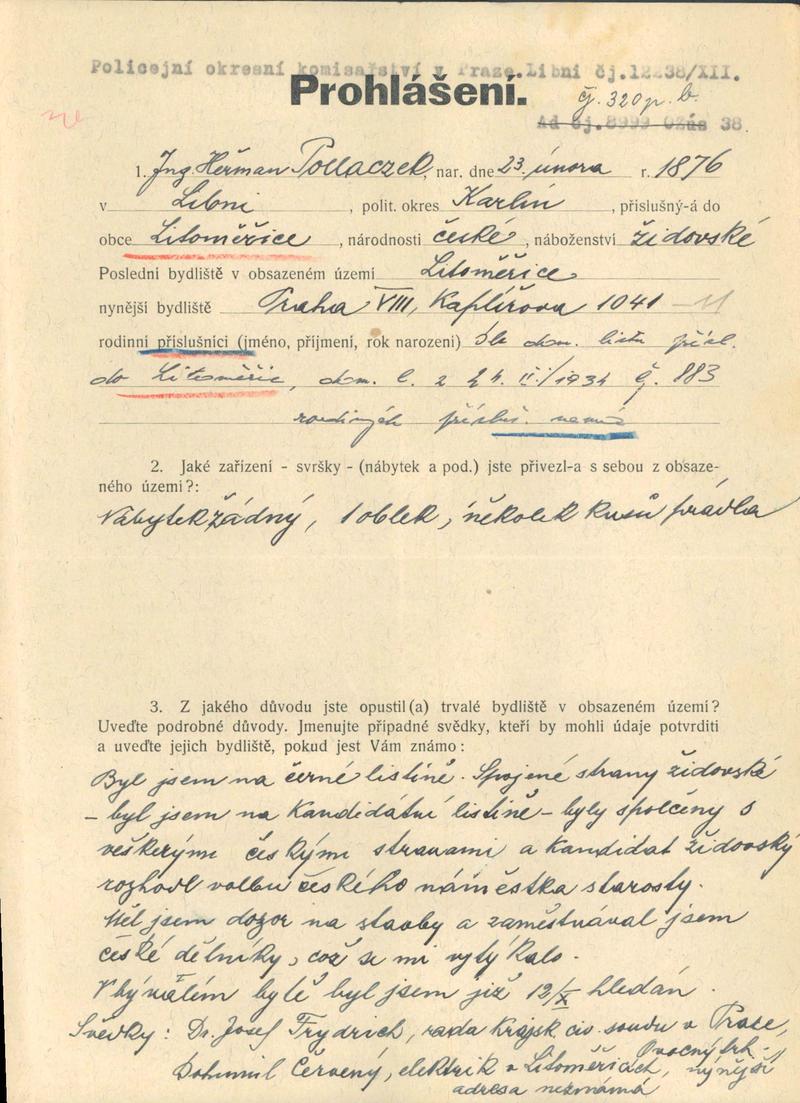 Policejní okresní komisařství v Praze Libni čj.12238/XII.
Prohlášení.
čj. 320 p. b.
Ad čj.8999 Ozás 38.
ne
1. Ing. Heřman Pollaczek, nar. dne 23. února r. 1876
v Libni, polit. okres Karlín, příslušný-á do
obce Litoměřice, národnosti české, náboženství židovské
Poslední bydliště v obsazeném území Litoměřice
nynější bydliště Praha VIII, Kaplířova 1041 - 11
rodinní příslušníci (jméno, příjmení, rok narození) dle dom. listu přísl.
do Litoměřic, dom. l. z 24. II./1934 č. 883
rodinných přísluš. nemá
2. Jaké zařízení - svršky - (nábytek a pod.) jste přivezl-a s sebou z obsaze-
ného území?:
Nábytek žádný, 1 oblek, několik kusů prádla
3. Z jakého důvodu jste opustil(a) trvalé bydliště v obsazeném území?
Uveďte podrobné důvody. Jmenujte případné svědky, kteří by mohli údaje potvrditi
a uveďte jejich bydliště, pokud jest Vám známo:
Byl jsem na černé listině. Spojené strany židovské
- byl jsem na kandidátní listině - byly spolčeny s
veškerými českými stranami a kandidat židovský
rozhodl volbu českého náměstka starosty.
Měl jsem dozor na stavby a zaměstnával jsem
české dělníky, což se mi vytýkalo.
V bývalém bytě byl jsem již 12/X hledán.
Svědky: Dr. Josef Frydrich, rada krajsk. civ. soudu v Praze,
Ovocný trh.
Bohumil Červený, elektrik v Litoměřicích, nynější
adresa neznámá